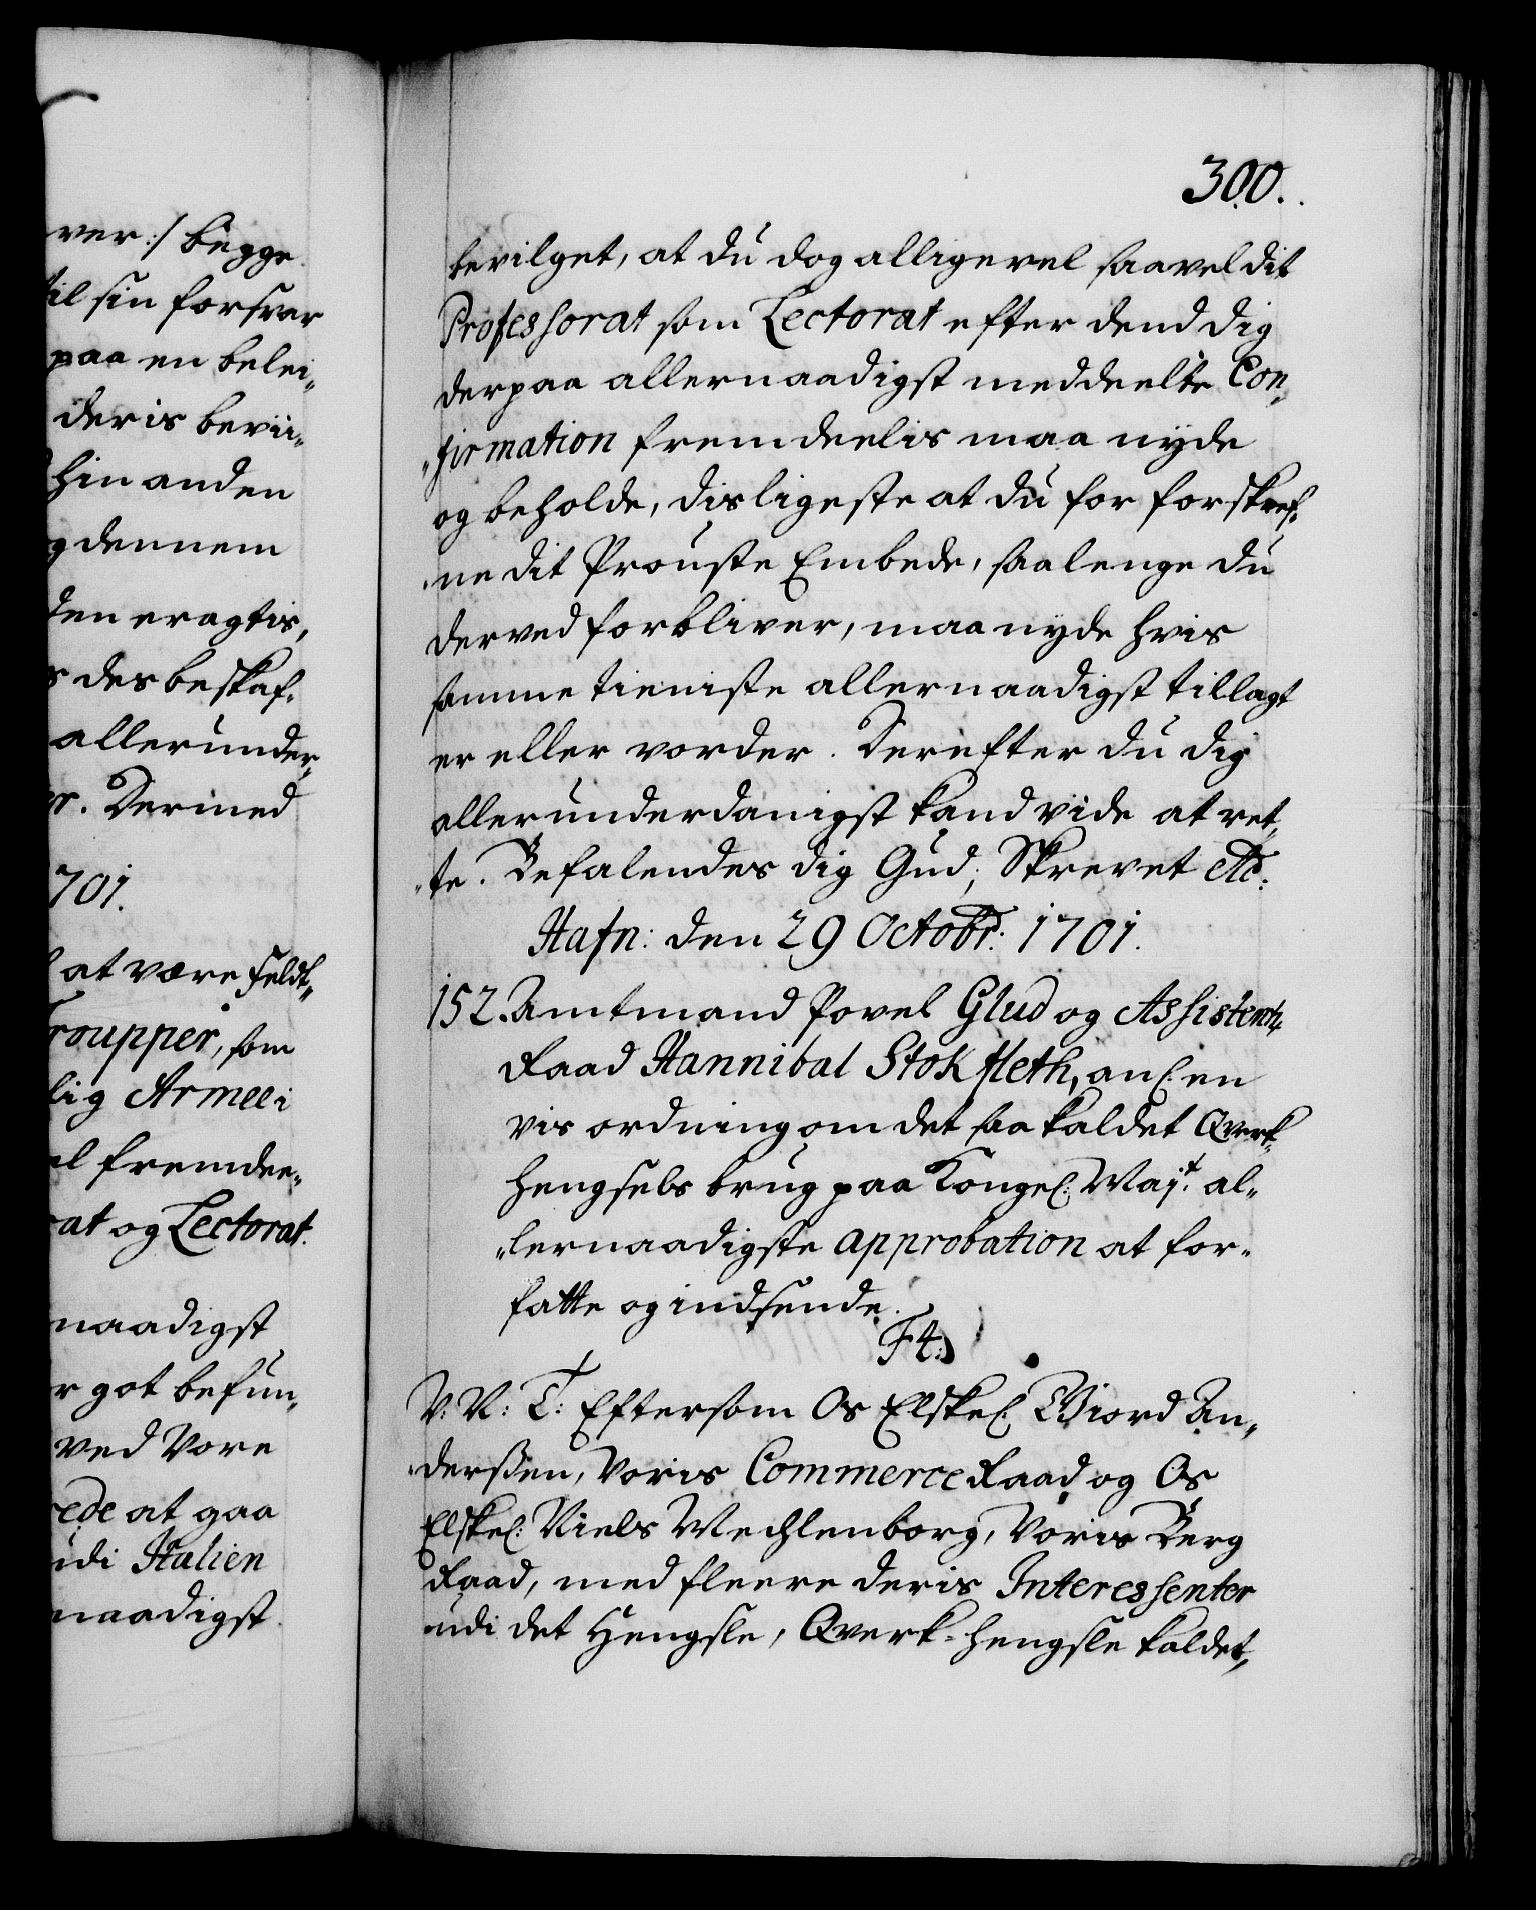 ver:/ begge
til sin forsvar
paa en belei„
deris bevii„
hin anden
g dennem
den eragtis,
s des beskaf„
allerunder„
er. Dermed
701.
at være Feldt„
Troupper, som
lig Armee i
el fremdee„
rat og Lectorat.
naadigst
r got befun„
ved Vore
rede at gaa
udi Italien
naadigst.
300.
bevilget, at du dog alligevel saavel dit
Professorat som Lectorat efter dend dig
derpaa allernaadigst meddeelte Con„
„firmation fremdeelis maa nyde
og beholde, disligeste at du for forskref„
„ne dit Prouste Embede, saalenge du
derved forbliver, maa nyde hvis
samme tieniste allernaadigst tillagt
er eller vorder. Derefter du dig
allerunderdanigst kand vide at ret„
„te. Befalendes dig Gud; Skrevet etc:
Hafn: den 29 Octobr: 1701.
152. Amtmand Povel Glud og Assistentz
Raad Hannibal Stokfleth, anl: en
vis ordning om det saa kaldet Qverk„
hengsels brug paa Kongel: Maj:t al„
„lernaadigste approbation at for„
fatte og indsende.
F4:
V: N: T: Eftersom Os Elskel: Giord An„
„derßen, Voris Commerce Raad og Os
Elskel: Niels Mechlenborg, Voris Berg
Raad, med fleere deris Interessenter
udi det Hengsle, Qverk-hengsle kaldet,